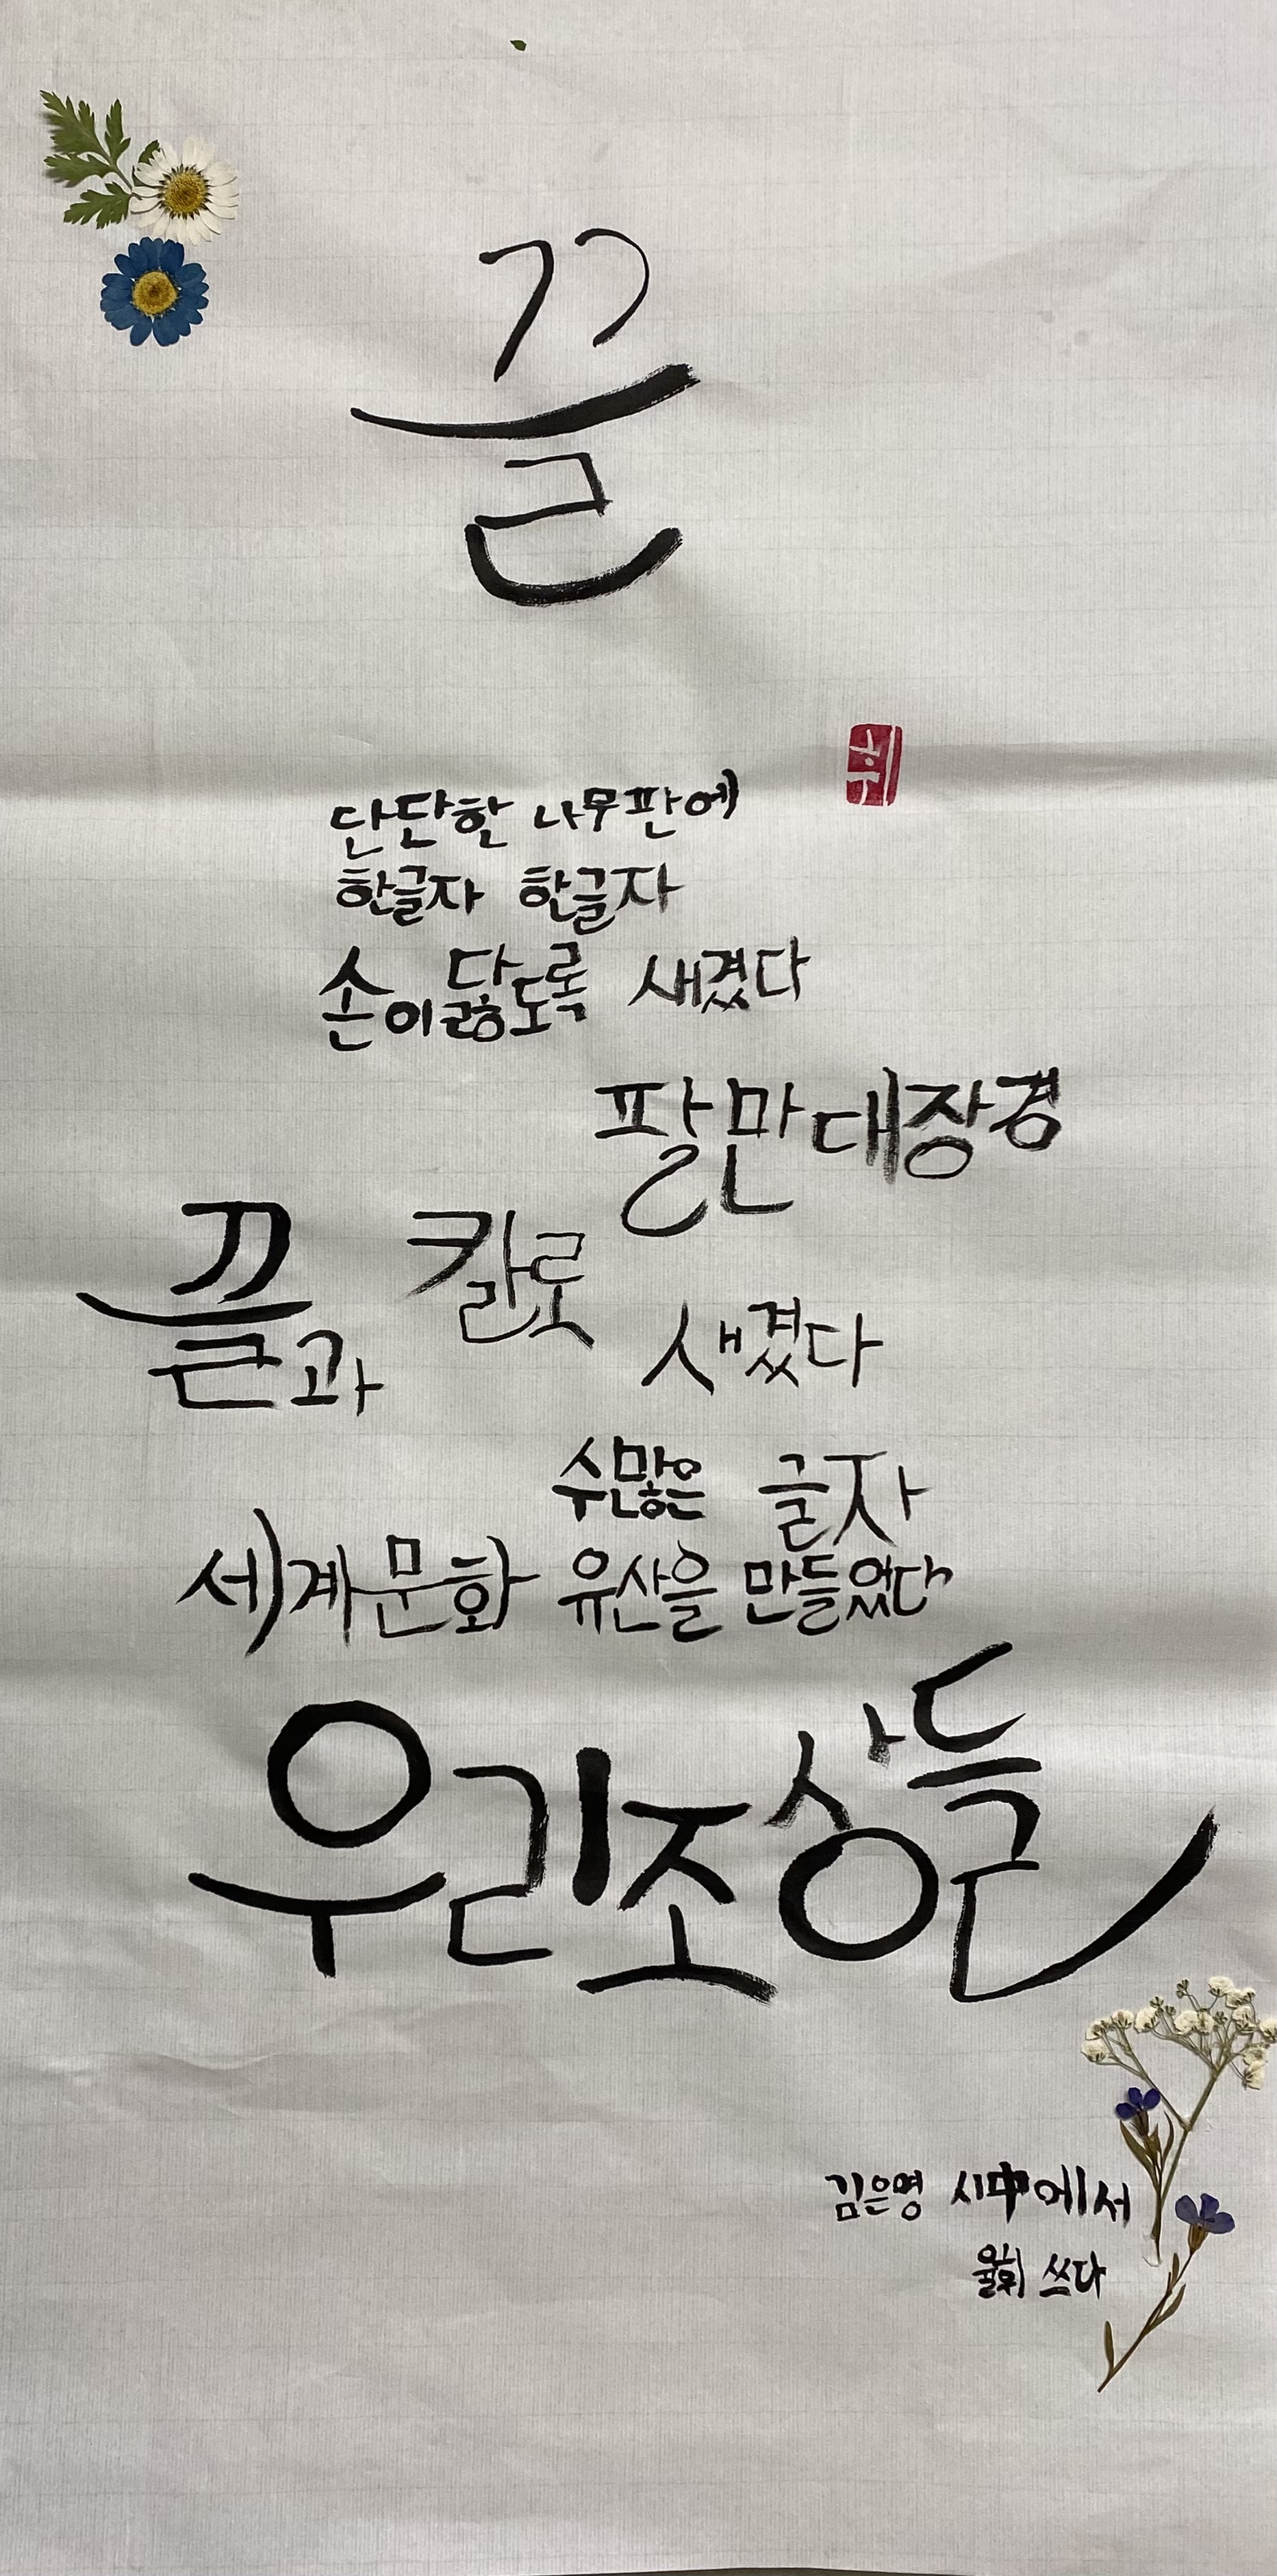 끌
단단한 나무판에
한글자 한글자
손이 닳도록 새겼다
팔만대장경
끌과 칼로 새겼다
수많은 글자
세계문화 유산을 만들었다
우리조상들
김은영 시中에서
쓰다